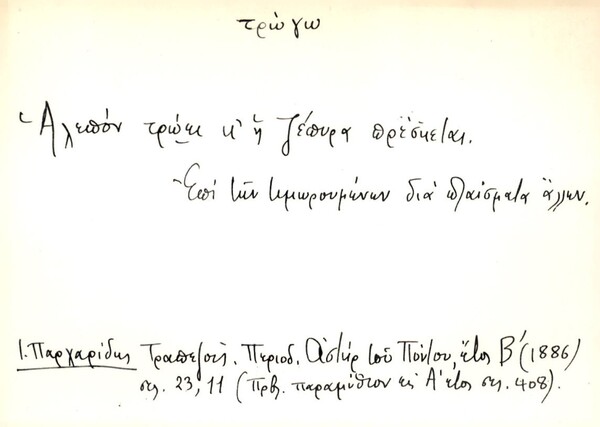 τρώγω
Ἀλεπὸν τρώει κ' ἡ ζέπυρα πρέσκεται.
Ἐπὶ τῶν τιμωρουμένων διὰ πταίσματα ἄλλων.
Ι. Παρχαρίδης Τραπεζοῦς. Περιοδ. Ἀστὴρ τοῦ Πόντου, ἔτος Β' (1886)
σελ. 23, 11 (Πρβ. παραμύθιον εἰς Α' ἔτος σελ. 408).